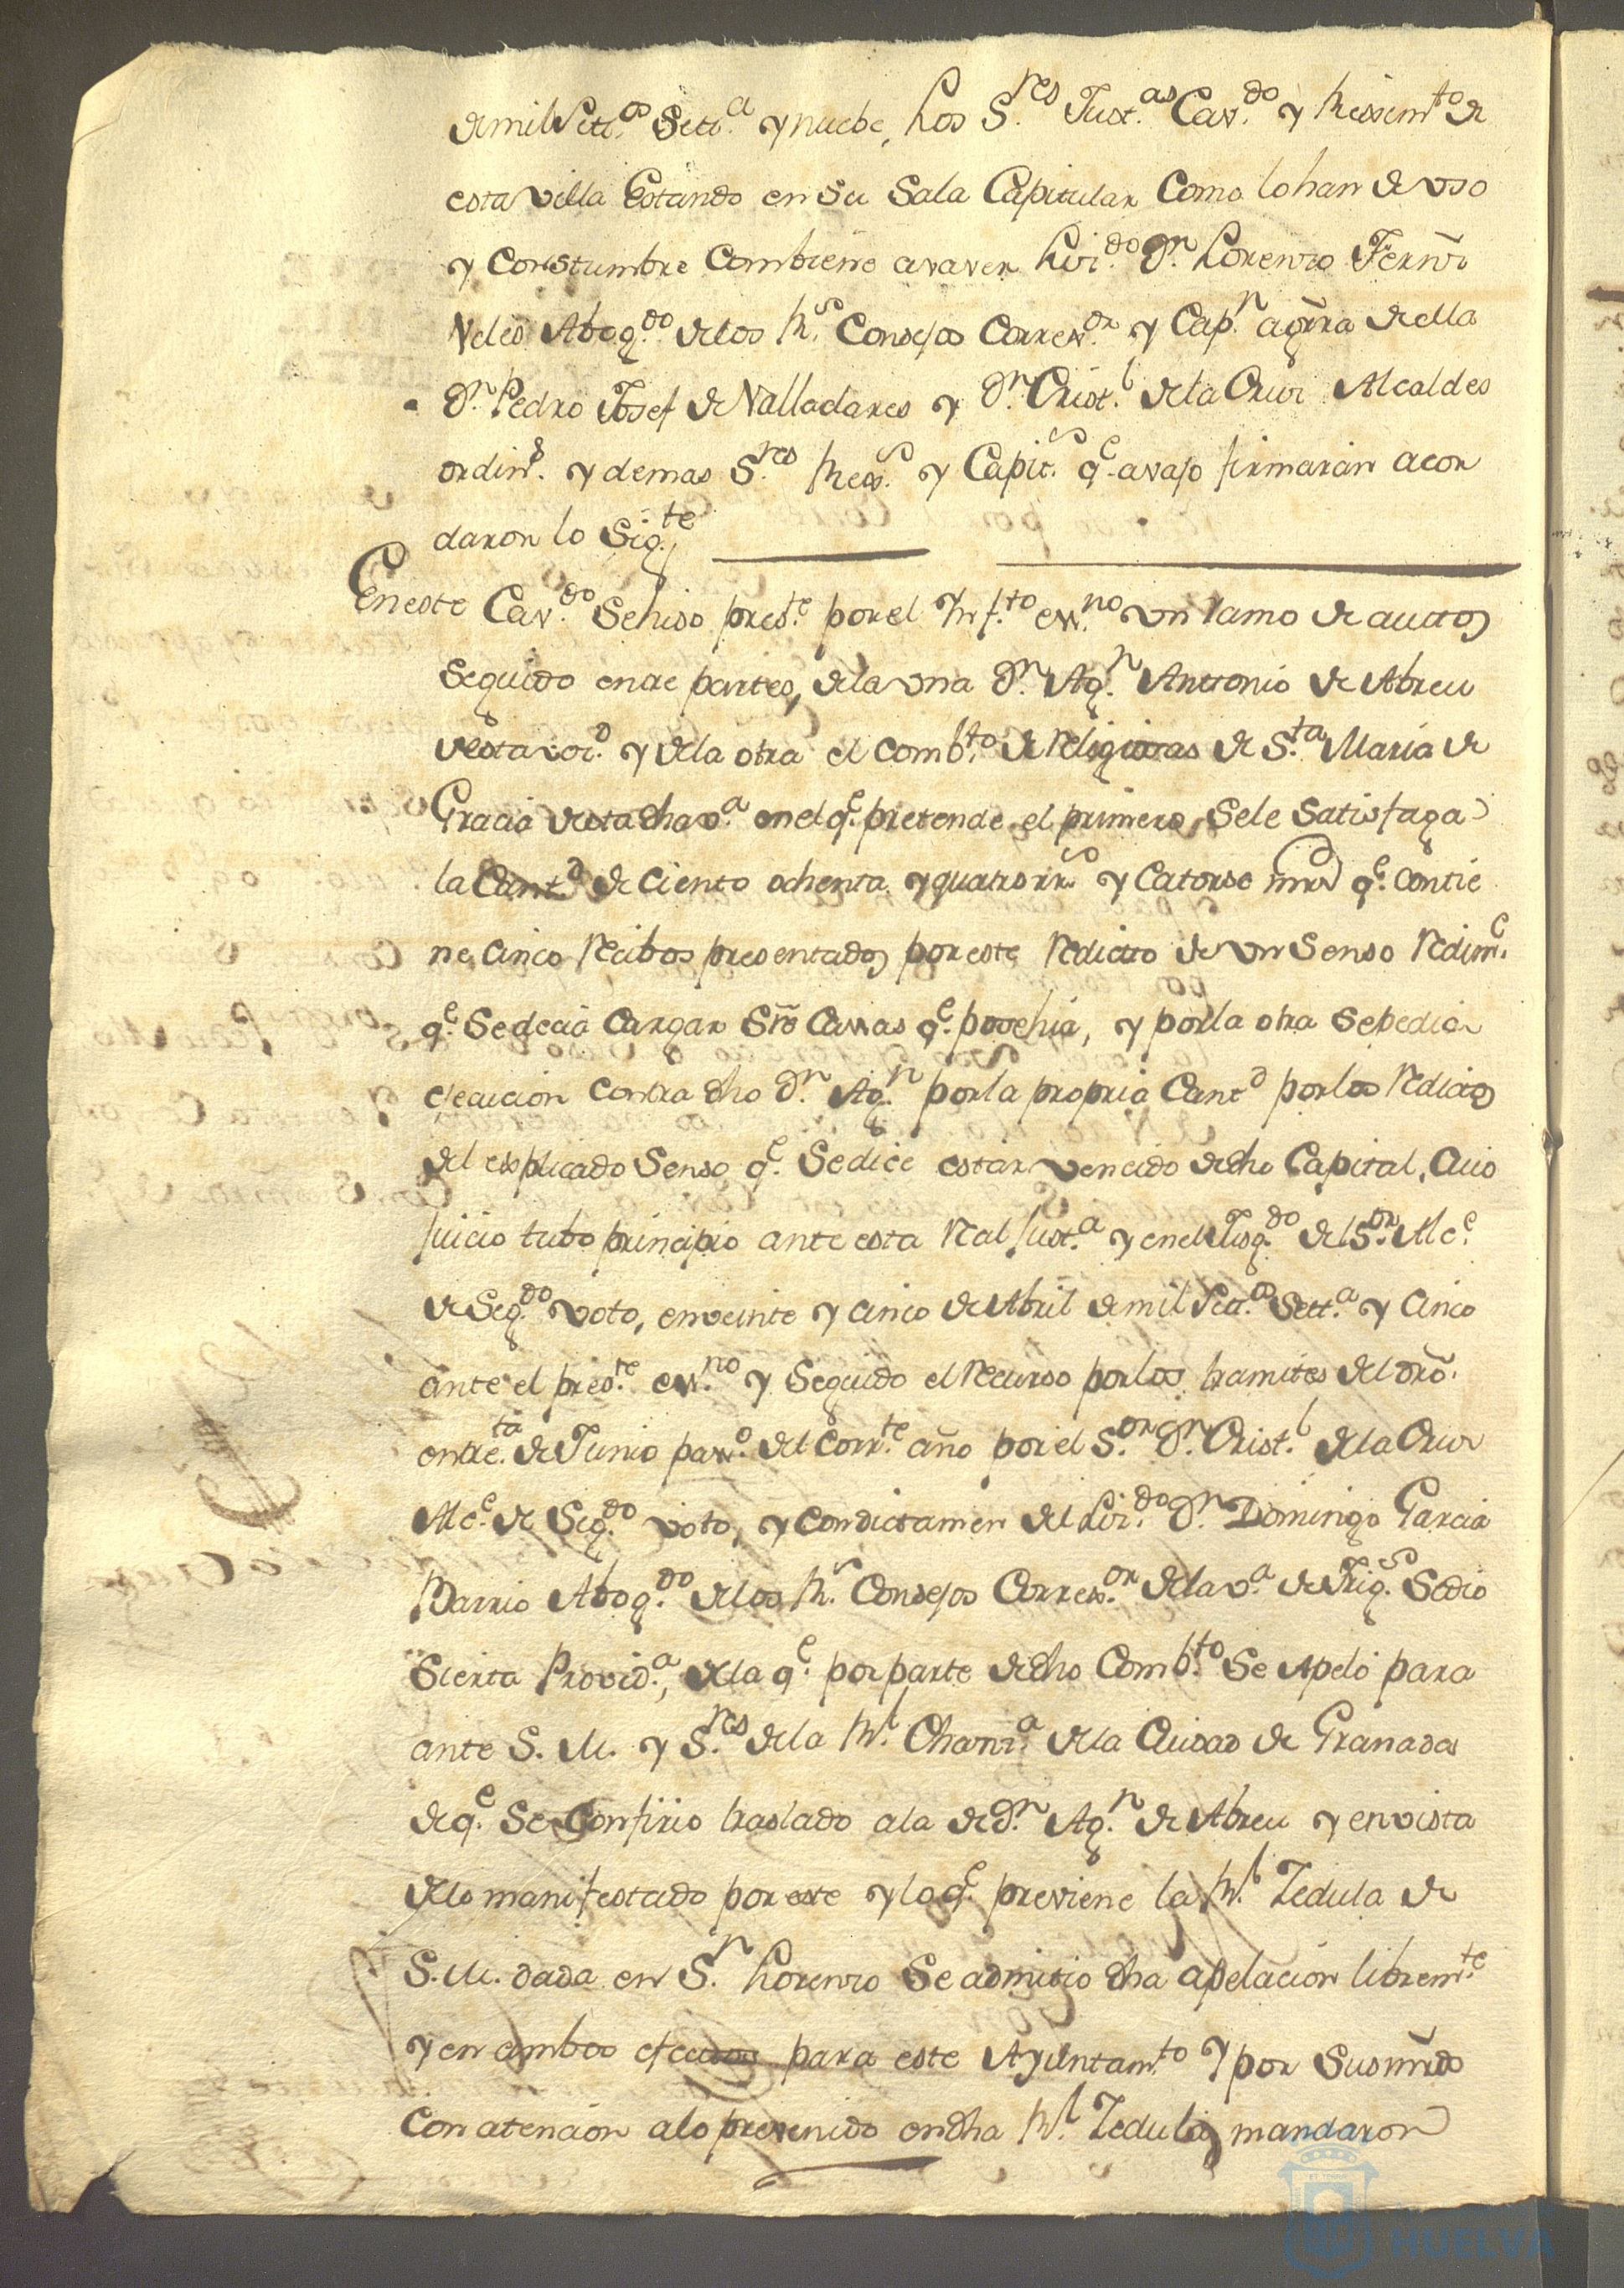 de mil Setc.os Sett.a y nuebe, Los S.res Just.as Cav.do y Rexim.to de
esta villa Estando en Su Sala Capitular Como lo han de vso
y Constumbre Combiene a saver Liz.do D.n Lorenzo Fernz
Veles Abog.do de los R.s Consejos Correx.or y Cap.n a grra de ella
D.n Pedro Josef de Valladares y D.n Crist.l de la Cruz Alcaldes
ordin.s y demas S.res Rex.s y Capit.s q.e avajo firmaran acor
daron lo Sig.te
En este Cav.do Se hiso pres.te por el Ynf.to exn.no vn ramo de auttos
Seguido entre partes, de la vna D.n Ag.n Anttonio de Abreu
de esta vez.d y de la otra el Comb.to de Religiosas de S.ta Maria de
Gracia de esta dha v.a en el q.e pretende el primero, Se le Satisfaga
la Cant.d de Ciento ochenta y quatro rr.s y Catorse mrs q.e Contie
ne, Cinco Recibos presentados por este Redicto de vn Senso Redim.e
q.e Se decia Cargar Sre Casas q.e posehia, y por la otra Se pedia
ejecucion Contra dho D.n Ag.n por la propria Cant.d por los Redictos
del explicado Senso q.e Se dice estar vencido de dho Capital, Cuio
Juicio tubo principio ante esta Real Just.a y en el Jusg.do del S.or Alc.e
de Seg.do voto, en veinte y Cinco de Abril de mil Sett.os Sett.a y Cinco
ante el pres.te exn.no y Seguido el Recurso por los tramites del dro.
en tre.ta de Junio pas.o del Corr.te año por el S.or D.n Crist.l de la Cruz
Alc.e de Seg.do voto, y Con dictamen del Liz.do D.n Domingo Garcia
Barrio Abog.do de los R.s Consejos Correx.or de la v.a de Trig.s Se dio
Sierta Provid.a, de la q.e por parte de dho Comb.to Se Apeló para
ante S. M. y S.res de la R.l Chanz.a de la Ciudad de Granada
de q.e Se Confirio traslado a la de D.n Ag.n de Abreu y en vista
de lo manifestado por este y lo q.e previene la R.l Zedula de
S. M. dada en S.n Lorenzo Se admitio dha apelacion librem.te
y en ambos efectos para este Ayuntam.to Y por Sus mrds
Con atencion a lo prevenido en dha R.l Zedula, mandaron
HUELVA